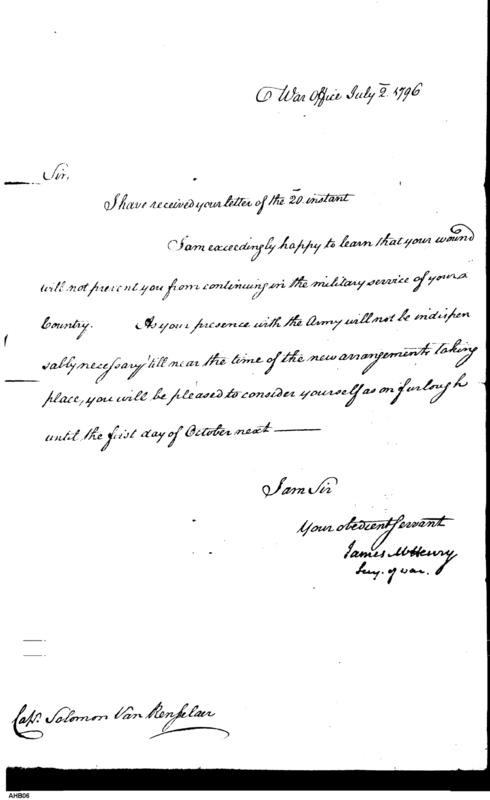 War Office July 2. 1796
Sir,
I have received your letter of the 20 instant
I am exceedingly happy to learn that your wound
will not prevent you from continuing in the military service of your
Country. As your presence with the Army will not be indispen
sably necessary 'till near the time of the new arrangements taking
place, you will be pleased to consider yourself as on furlough
until the first day of October next
I am Sir
Your obedient Servant
James McHenry
Secy. of war.
Capt. Solomon Van Rensselaer
AHB06